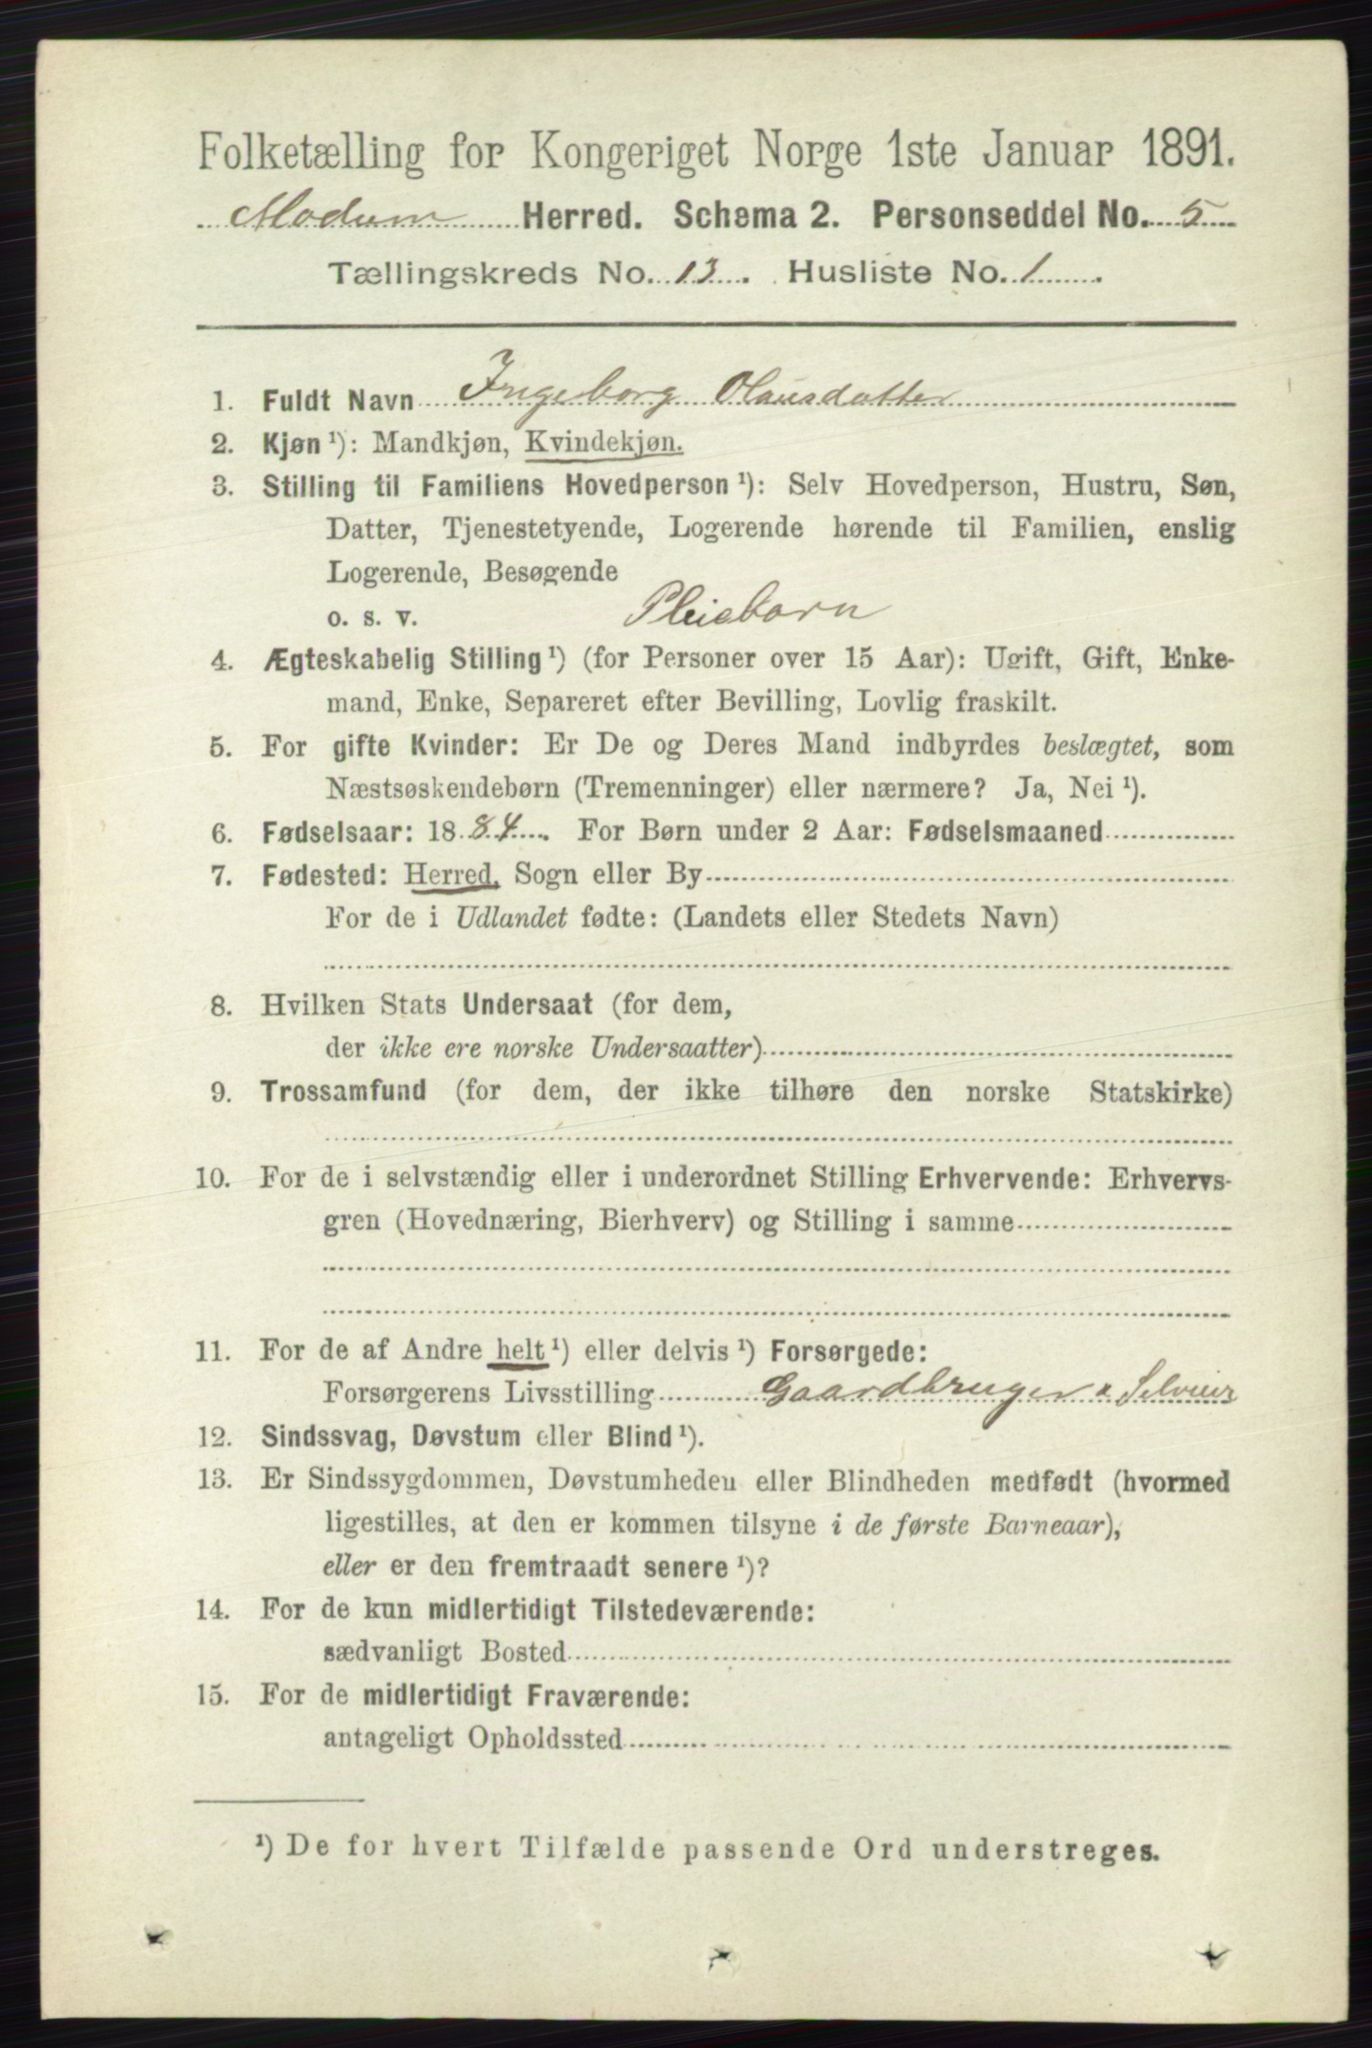 Folketælling for Kongeriget Norge 1ste Januar 1891.
Modum Herred. Schema 2. Personseddel No. 5
Tællingskreds No. 13. Husliste No. 1.
1. Fuldt Navn Ingeborg Olausdatter
2. Kjøn ¹): Mandkjøn, Kvindekjøn.
3. Stilling til Familiens Hovedperson ¹): Selv Hovedperson, Hustru, Søn,
Datter, Tjenestetyende, Logerende hørende til Familien, enslig
Logerende, Besøgende
o. s. v. Pleiebarn
4. Ægteskabelig Stilling ¹) (for Personer over 15 Aar): Ugift, Gift, Enke-
mand, Enke, Separeret efter Bevilling, Lovlig fraskilt.
5. For gifte Kvinder: Er De og Deres Mand indbyrdes beslægtet, som
Næstsøskendebørn (Tremenninger) eller nærmere? Ja, Nei ¹).
6. Fødselsaar: 1884. For Børn under 2 Aar: Fødselsmaaned
7. Fødested: Herred, Sogn eller By
For de i Udlandet fødte: (Landets eller Stedets Navn)
8. Hvilken Stats Undersaat (for dem,
der ikke ere norske Undersaatter)
9. Trossamfund (for dem, der ikke tilhøre den norske Statskirke)
10. For de i selvstændig eller i underordnet Stilling Erhvervende: Erhvervs-
gren (Hovednæring, Bierhverv) og Stilling i samme
11. For de af Andre helt ¹) eller delvis ¹) Forsørgede:
Forsørgerens Livsstilling Gaardbruger & Selveier
12. Sindssvag, Døvstum eller Blind ¹).
13. Er Sindssygdommen, Døvstumheden eller Blindheden medfødt (hvormed
ligestilles, at den er kommen tilsyne i de første Barneaar),
eller er den fremtraadt senere ¹)?
14. For de kun midlertidigt Tilstedeværende:
sædvanligt Bosted
15. For de midlertidigt Fraværende:
antageligt Opholdssted
¹) De for hvert Tilfælde passende Ord understreges.